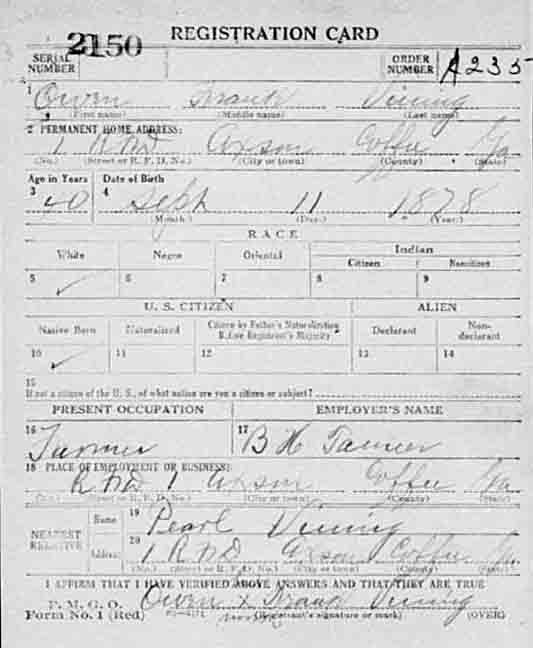 REGISTRATION CARD
SERIAL NUMBER 2150 ORDER NUMBER A235
1 Owen Frank Vining
(First name) (Middle name) (Last name)
2 PERMANENT HOME ADDRESS:
1 RFD Axson Coffee Ga
(No.) (Street or R. F. D. No.) (City or town) (County) (State)
Age in Years Date of Birth
3 40 4 Sept 11 1878
(Month.) (Day.) (Year.)
RACE
White Negro Oriental Indian
Citizen Noncitizen
5 ✓ 6 7 8 9
U. S. CITIZEN ALIEN
Native Born Naturalized Citizen by Father's Naturalization Before Registrant's Majority Declarant Non-declarant
10 ✓ 11 12 13 14
15
If not a citizen of the U. S., of what nation are you a citizen or subject?
PRESENT OCCUPATION EMPLOYER'S NAME
16 Farmer 17 B H Tanner
18 PLACE OF EMPLOYMENT OR BUSINESS:
RFD 1 Axson Coffee Ga
(No.) (Street or R. F. D. No.) (City or town) (County) (State)
NEAREST RELATIVE
Name 19 Pearl Vining
Address 20 1 RFD Axson Coffee Ga
(No.) (Street or R. F. D. No.) (City or town) (County) (State)
I AFFIRM THAT I HAVE VERIFIED ABOVE ANSWERS AND THAT THEY ARE TRUE
P. M. G. O.
Form No. 1 (Red) Owen x Frank Vining
(Registrant's signature or mark) (OVER)